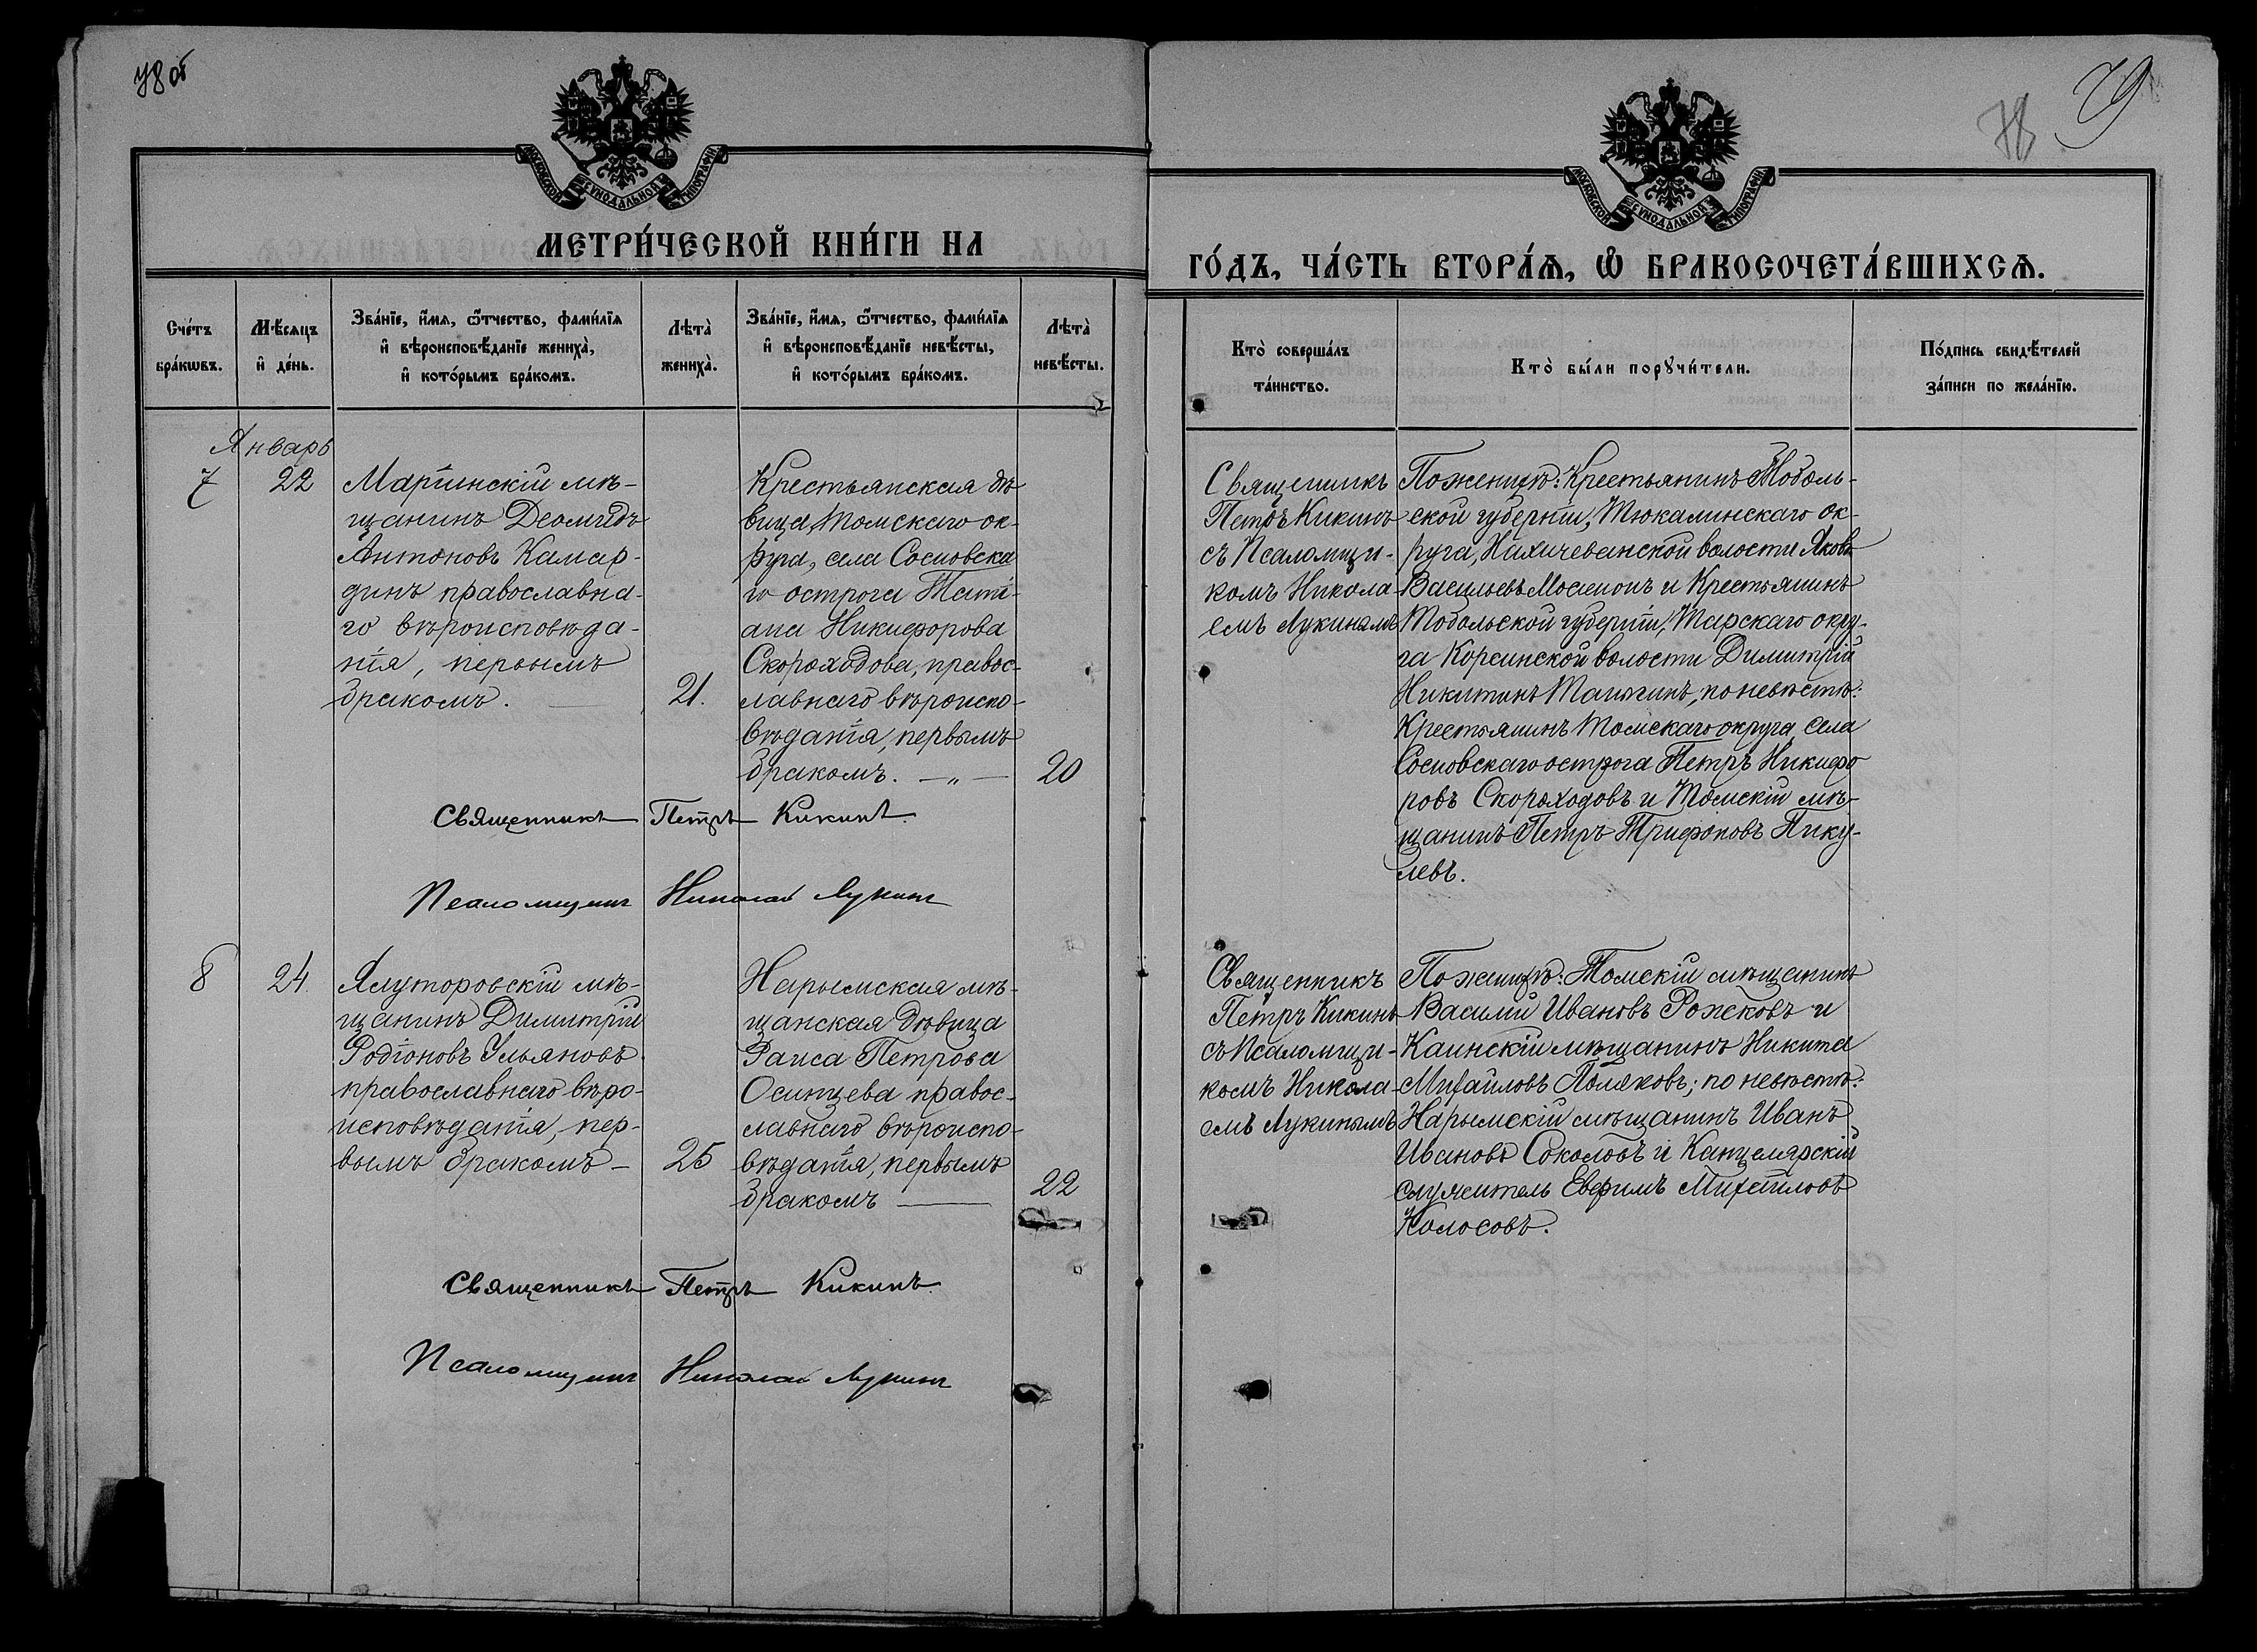 78 об
78 79
МОСКОВСКОЙ СѴНОДАЛЬНОЙ ТИПОГРАФІИ
МОСКОВСКОЙ СѴНОДАЛЬНОЙ ТИПОГРАФІИ
МЕТРИ́ЧЕСКОЙ КНИ́ГИ НА
ГО́ДЪ, ЧА́СТЬ ВТОРА́Ѧ, Ѽ БРАКОСОЧЕТА́ВШИХСѦ.
Сче́тъ
бра́кѡвъ.
Мѣ́сяцъ
и҆ де́нь.
Зва́нїе, и҆́мѧ, ѻ҆́тчество, фами́лїѧ
и҆ вѣроисповѣ́данїе жениха̀,
и҆ кото́рымъ бра́комъ.
Лѣта̀
жениха̀.
Зва́нїе, и҆́мѧ, ѻ҆́тчество, фами́лїѧ
и҆ вѣроисповѣ́данїе невѣ́сты,
и҆ кото́рымъ бра́комъ.
Лѣта̀
невѣ́сты.
Кто̀ соверша́лъ
та́инство.
Кто̀ бы́ли порꙋчи́тели.
По́дпись свидѣ́телей
за́писи по жела́нїю.
Январь
7
22
Маріинскій мѣ-
щанинъ Деомидъ
Антоновъ Камар-
динъ православна-
го вѣроисповѣда-
нія, первымъ
бракомъ.
21.
Крестьянская дѣ
вица, Томскаго ок-
руга, села Сосновска
го острога Таті-
ана Никифорова
Скороходова, правос-
лавнаго вѣроиспо-
вѣданія, первымъ
бракомъ. — „ —
20
Священникъ Петръ Кикинъ.
Псаломщикъ Николай Лукинъ
Священникъ
Петръ Кикинъ
съ Псаломщи-
комъ Никола-
емъ Лукинымъ
По женихѣ: Крестьянинъ Тоболь-
ской губерніи, Тюкалинскаго ок-
руга, Нахичеванской волости Яковъ
Васильевъ и Крестьянинъ
Тобольской губерніи, Тарскаго окру-
га Корсинской волости Димитрій
Никитинъ, по невѣстѣ:
Крестьянинъ Томскаго округа села
Сосновскаго острога Петръ Никифо
ровъ Скороходовъ и Томскій мѣ-
щанинъ Петръ Трифоновъ Пику-
левъ.
8
24.
Ялуторовскій мѣ-
щанинъ Димитрій
Родіоновъ Ульяновъ
православнаго вѣро-
исповѣданія, пер-
вымъ бракомъ —
25
Нарымская мѣ-
щанская дѣвица
Раиса Петрова
Осипцева правос-
лавнаго вѣроиспо-
вѣданія, первымъ
бракомъ —
22
Священникъ Петръ Кикинъ.
Псаломщикъ Николай Лукинъ
Священникъ
Петръ Кикинъ
съ Псаломщи-
комъ Никола-
емъ Лукинымъ
По женихѣ: Томскій мѣщанинъ
Василій Ивановъ Рожковъ и
Каинскій мѣщанинъ Никита
Михайловъ Поляковъ; по невѣстѣ:
Нарымскій мѣщанинъ Иванъ
Ивановъ Соколовъ и Канцелярскій
служитель Евфимъ Михайловъ
Колосовъ.